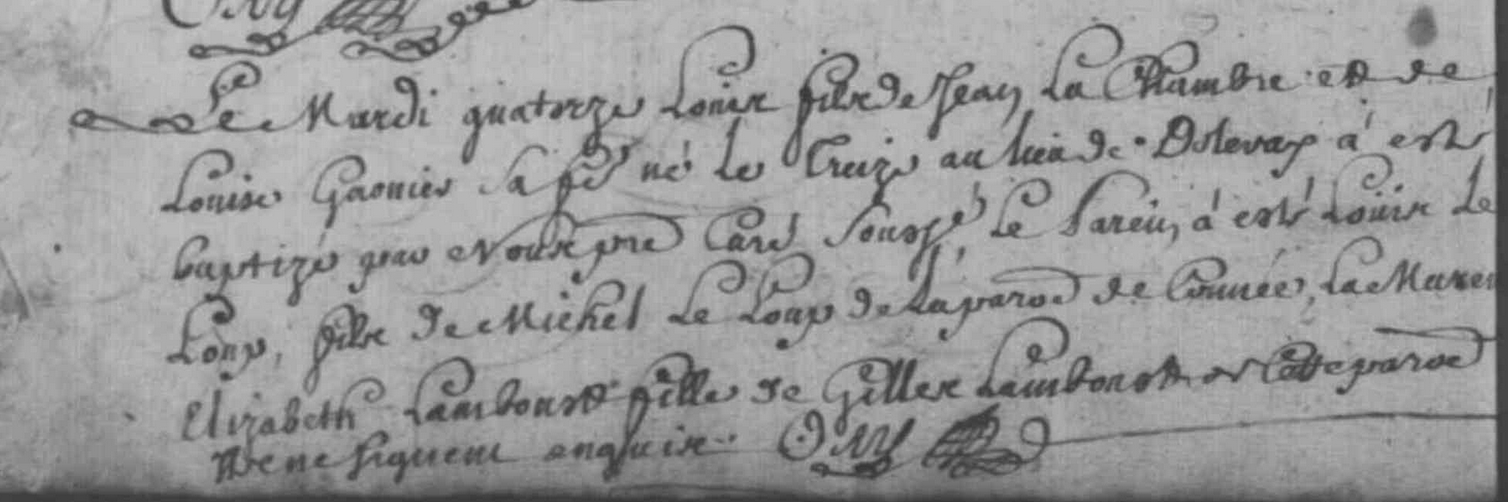 Le Mardi quatorze Louis fils de Jean La Chambre et de
Louise Gaonier sa fe né le treize au lieu de a esté
baptizé par Nous pre Curé soussé Le Parein a esté Louis Le
Loup, fils de Michel Le Loup de La paroe de Connée, La Marene
Elizabeth Lamboust fille de Gilles Lamboust de Cette paroe
qui ne signent enquis.